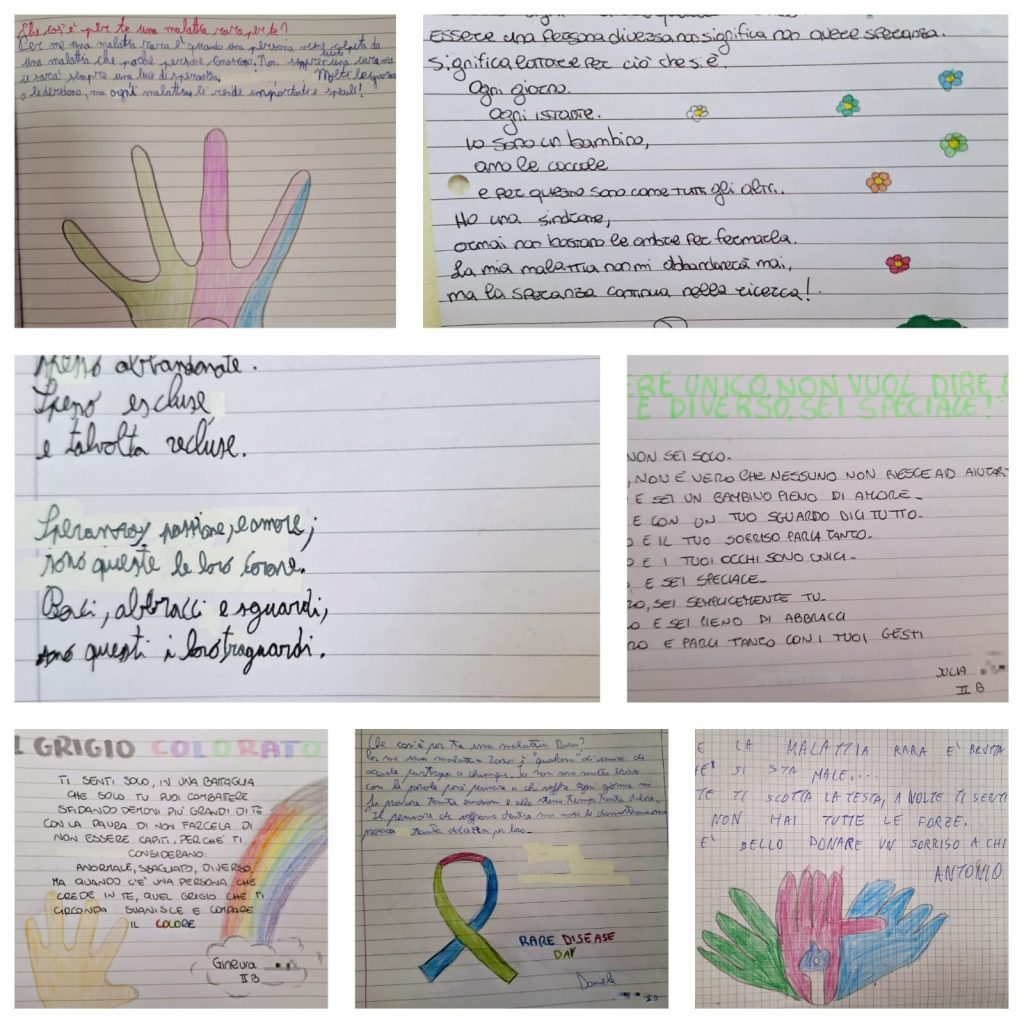 Che cos'è per te una malattia rara per te?
Per me una malattia rara è quando una persona viene colpita da
una malattia che poche persone conoscono. Non sempre una cura ma
ci sarà sempre una luce di speranza. Molti
o la deridono, ma ogni malattia li rende importanti e speciali!
Essere una persona diversa non significa non avere speranza.
Significa lottare per ciò che si è.
Ogni giorno.
Ogni istante.
Io sono un bambino,
amo le coccole
e per questo sono come tutti gli altri.
Ho una sindrome,
ormai non bastano le ombre per fermarla.
La mia malattia non mi abbandonerà mai,
ma la speranza continua nella ricerca!
spesso abbandonate.
Spesso escluse,
e talvolta recluse.
Speranza, passione, e amore;
sono queste le loro corone.
Baci, abbracci e sguardi,
sono questi i loro traguardi.
ERE UNICO NON VUOL DIRE E
E DIVERSO, SEI SPECIALE!
NON SEI SOLO.
, NON È VERO CHE NESSUNO NON RIESCE AD AIUTAR
E SEI UN BAMBINO PIENO DI AMORE.
E CON UN TUO SGUARDO DICI TUTTO.
O E IL TUO SORRISO PARLA TANTO.
O E I TUOI OCCHI SONO UNICI.
E SEI SPECIALE.
RO, SEI SEMPLICEMENTE TU.
O E SEI PIENO DI ABBRACCI
RO E PARLI TANTO CON I TUOI GESTI
JULIA
II B
L GRIGIO COLORATO
TI SENTI SOLO, IN UNA BATTAGLIA
CHE SOLO TU PUOI COMBATERE
SFIDANDO DEMONI PIÙ GRANDI DI TE
CON LA PAURA DI NON FARCELA DI
NON ESSERE CAPITI, PERCHÉ TI
CONSIDERANO:
ANORMALE, SBAGLIATO, DIVERSO
MA QUANDO C'È UNA PERSONA CHE
CREDE IN TE, QUEL GRIGIO CHE TI
CIRCONDA SVANISCE E COMPARE
IL COLORE
Ginevra
II B
Che cos'è per te una malattia Rara?
Per me una malattia rara è "qualcosa" di unico che
accade purtroppo a chiunque. Io non sono molto brava
con le parole però pensare a chi soffre ogni giorno mi
fa provare tante emozioni e allo stesso tempo tanto dolore.
Il pensare che soffrano dentro ma non lo dimostrano mi
provoca tanta dolcezza per loro.
RARE DISEASE
DAY
Daniela
E LA MALATTIA RARA E' BRUTTA
HE' SI STA MALE....
TE TI SCOTTA LA TESTA, A VOLTE TI SENTI
NON HAI TUTTE LE FORZE.
E' BELLO DONARE UN SORRISO A CHI
ANTONIO